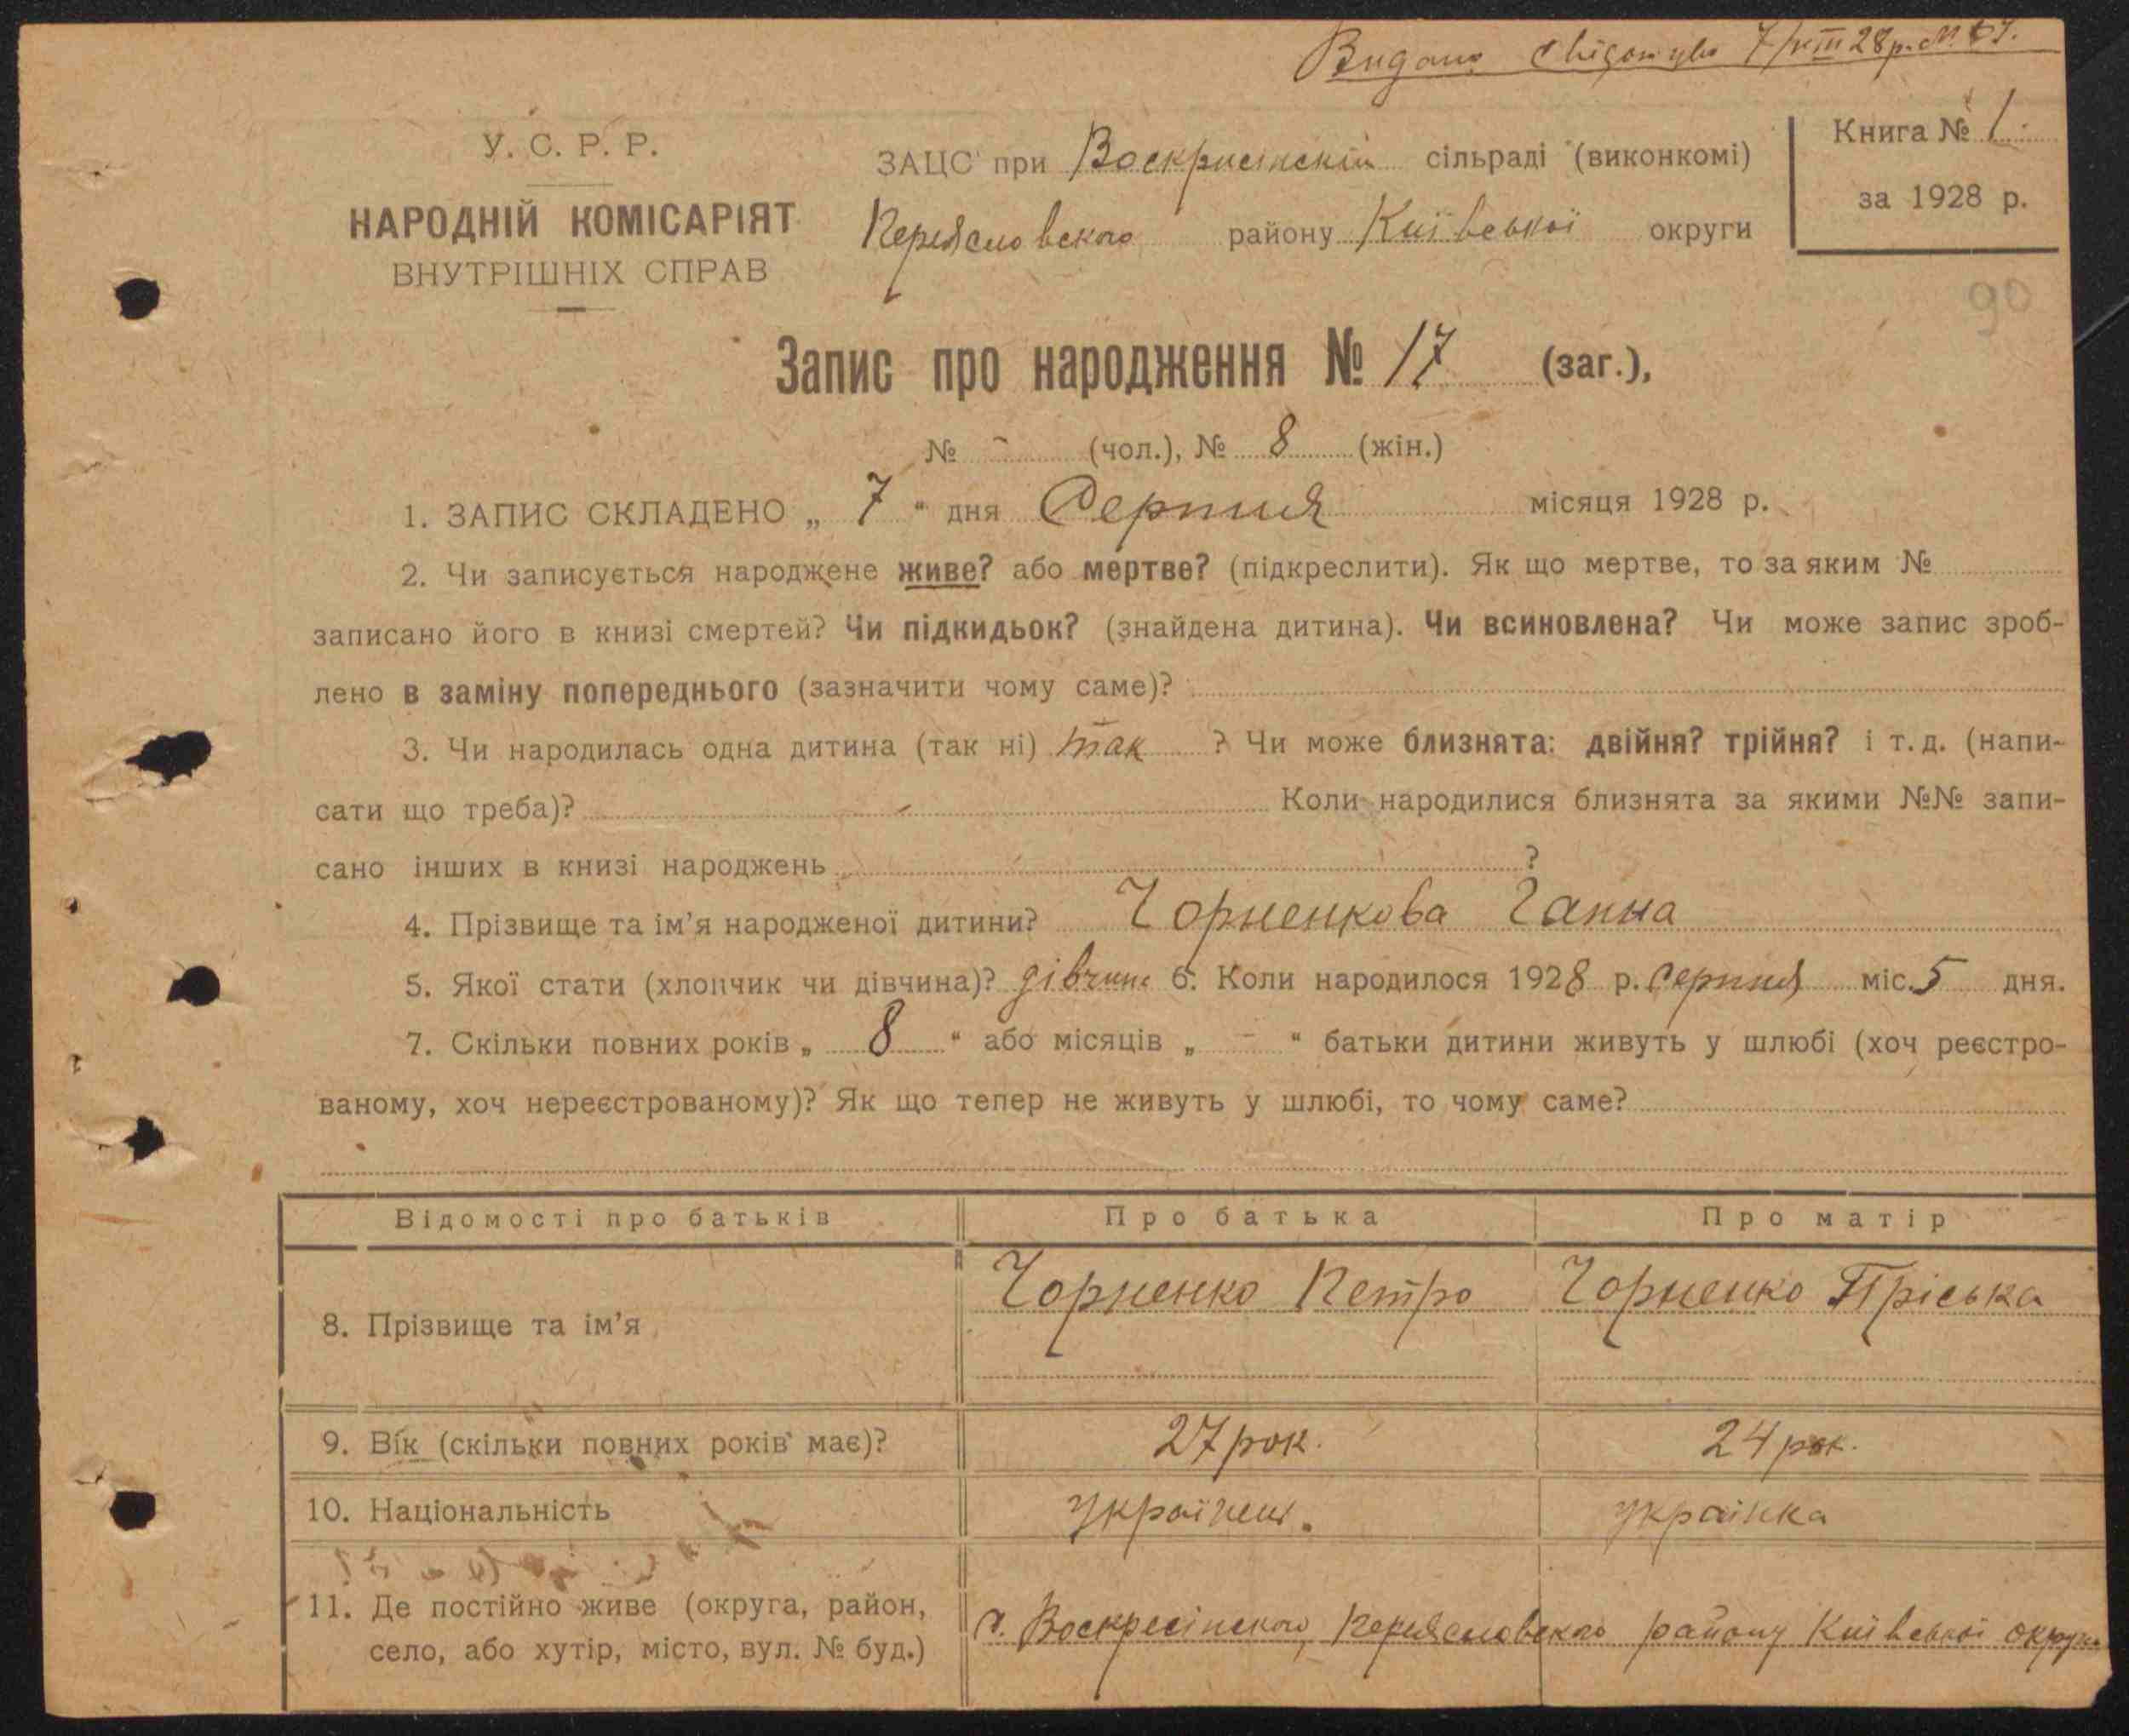 Видано свідоцтво 7/VIII 28 р. №
У. С. Р. Р.
НАРОДНІЙ КОМІСАРІЯТ
ВНУТРІШНІХ СПРАВ
ЗАЦС при Воскрисінскій сільраді (виконкомі)
Переясловского району Київської округи
Книга № 1
за 1928 р.
90
Запис про народження № 17 (заг.),
№ - (чол.), № 8 (жін.)
1. ЗАПИС СКЛАДЕНО „ 7 “ дня Серпня місяця 1928 р.
2. Чи записується народжене живе? або мертве? (підкреслити). Як що мертве, то за яким №
записано його в книзі смертей? Чи підкидьок? (знайдена дитина). Чи всиновлена? Чи може запис зроб-
лено в заміну попереднього (зазначити чому саме)?
3. Чи народилась одна дитина (так ні) так ? Чи може близнята: двійня? трійня? і т. д. (напи-
сати що треба)? Коли народилися близнята за якими №№ запи-
сано інших в книзі народжень ?
4. Прізвище та ім’я народженої дитини? Чорненкова Ганна
5. Якої стати (хлопчик чи дівчина)? дівчина 6. Коли народилося 1928 р. серпня міс. 5 дня.
7. Скільки повних років „ 8 “ або місяців „ - “ батьки дитини живуть у шлюбі (хоч реєстро-
ваному, хоч нереєстрованому)? Як що тепер не живуть у шлюбі, то чому саме?
Відомості про батьків Про батька Про матір
8. Прізвище та ім’я Чорненко Петро Чорненко Пріська
9. Вік (скільки повних років має)? 27 рок. 24 рок.
10. Національність Українець. українка
11. Де постійно живе (округа, район,
село, або хутір, місто, вул. № буд.) с. Воскресінского, Переясловского району Київської округи